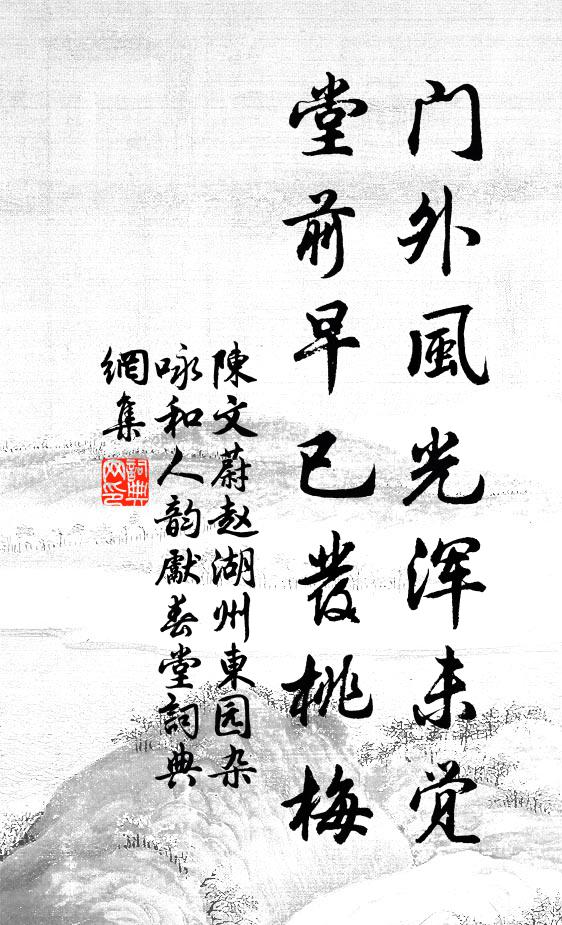 门外風光浑未觉
堂前早已發桃梅
陳文蔚赵湖州東园杂
咏和人韵獻春堂詞典
網集
詞典
网印